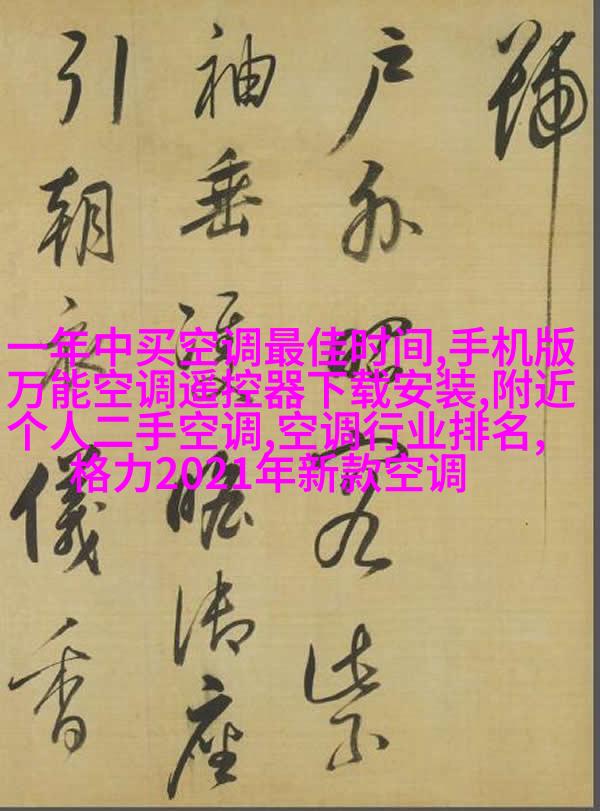 號
户外昭容紫
袖垂雙瞻御座
引朝衣儀香
一年中买空调最佳时间,手机版
万能空调遥控器下载安装,附近
个人二手空调,空调行业排名,
格力2021年新款空调